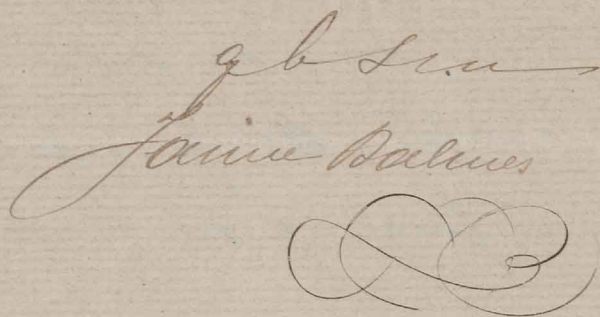 q b s m
Jaime Balmes